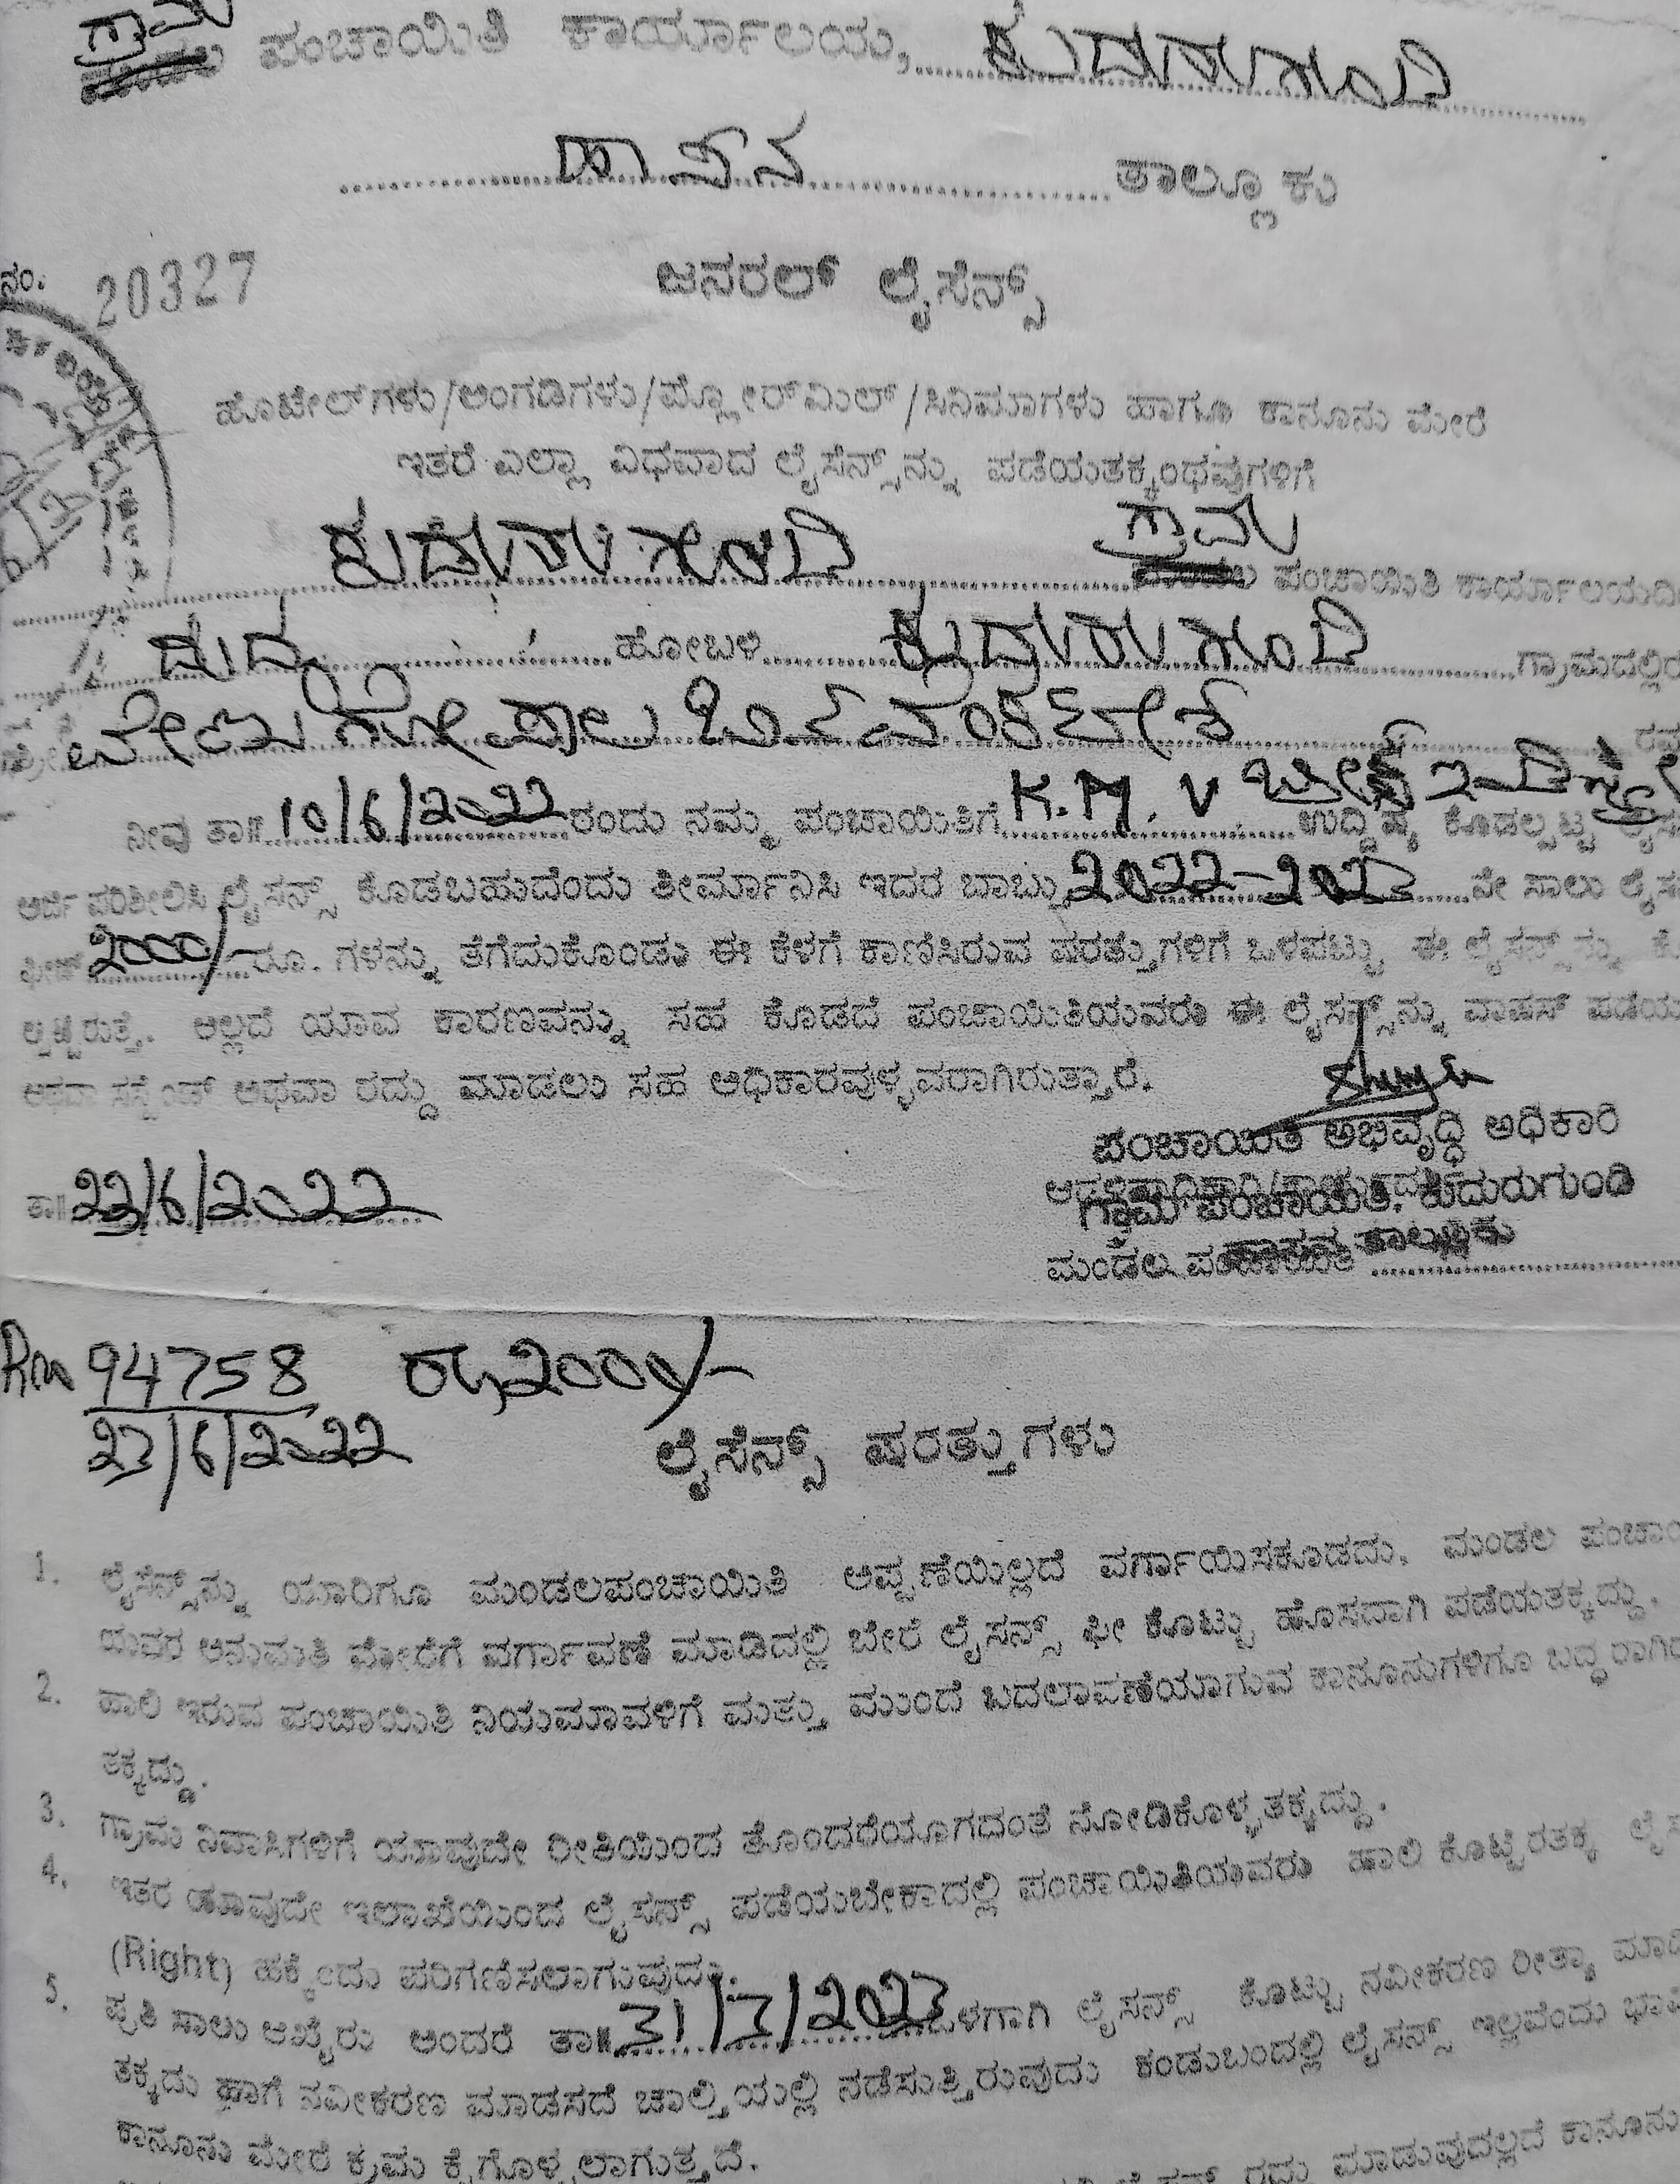 ಗ್ರಾಮ
ಪಂಚಾಯಿತಿ ಕಾರ್ಯಾಲಯ, ಕುದುರುಗುಂಡಿ
ಹಾಸನ ತಾಲ್ಲೂಕು
ನಂ. 20327
ಜನರಲ್ ಲೈಸೆನ್ಸ್
ಹೊಟೇಲ್‌ಗಳು/ಅಂಗಡಿಗಳು/ಫ್ಲೋರ್‌ಮಿಲ್/ಸಿನಿಮಾಗಳು ಹಾಗೂ ಕಾನೂನು ಮೇರೆ
ಇತರೆ ಎಲ್ಲಾ ವಿಧವಾದ ಲೈಸೆನ್ಸ್‌ನ್ನು ಪಡೆಯತಕ್ಕಂಥವುಗಳಿಗೆ
ಕುದುರುಗುಂಡಿ ಗ್ರಾಮ ಪಂಚಾಯಿತಿ ಕಾರ್ಯಾಲಯದಿ
ದುದ್ದ ಹೋಬಳಿ ಕುದುರುಗುಂಡಿ ಗ್ರಾಮದಲ್ಲಿರ
ವೇಣುಗೋಪಾಲ ಬಿನ್ ವೆಂಕಟೇಶ ರವ
ನೀವು ತಾ|| 10/6/2022 ರಂದು ನಮ್ಮ ಪಂಚಾಯಿತಿಗೆ K.M.V ಉದ್ದಿಶ್ಯ ಕೊಡಲ್ಪಟ್ಟ ಲೈಸ
ಅರ್ಜಿ ಪರಿಶೀಲಿಸಿ ಲೈಸನ್ಸ್ ಕೊಡಬಹುದೆಂದು ತೀರ್ಮಾನಿಸಿ ಇದರ ಬಾಬ್ತು 2022-2023 ನೇ ಸಾಲು ಲೈಸ
ಫೀಜ್ 2000/- ರೂ. ಗಳನ್ನು ತೆಗೆದುಕೊಂಡು ಈ ಕೆಳಗೆ ಕಾಣಿಸಿರುವ ಷರತ್ತುಗಳಿಗೆ ಒಳಪಟ್ಟು ಈ ಲೈಸನ್ಸ್‌ನ್ನು ಕೊ
ಲ್ಪಟ್ಟಿರುತ್ತೆ. ಅಲ್ಲದೆ ಯಾವ ಕಾರಣವನ್ನು ಸಹ ಕೊಡದೆ ಪಂಚಾಯಿತಿಯವರು ಈ ಲೈಸನ್ಸ್‌ನ್ನು ವಾಪಸ್ ಪಡೆಯ
ಅಥವಾ ಸಸ್ಪೆಂಡ್ ಅಥವಾ ರದ್ದು ಮಾಡಲು ಸಹ ಅಧಿಕಾರವುಳ್ಳವರಾಗಿರುತ್ತಾರೆ.
ಪಂಚಾಯಿತಿ ಅಭಿವೃದ್ಧಿ ಅಧಿಕಾರಿ
ತಾ|| 23/6/2022
ಗ್ರಾಮ ಪಂಚಾಯಿತಿ, ಕುದುರುಗುಂಡಿ
ಹಾಸನ ತಾಲ್ಲೂಕು
ಮಂಡಲ ಪಂಚಾಯಿತಿ
94758 ರೂ, 2000/-
23/6/2022
ಲೈಸೆನ್ಸ್ ಷರತ್ತುಗಳು
1. ಲೈಸೆನ್ಸ್‌ನ್ನು ಯಾರಿಗೂ ಮಂಡಲಪಂಚಾಯಿತಿ ಅಪ್ಪಣೆಯಿಲ್ಲದೆ ವರ್ಗಾಯಿಸಕೂಡದು. ಮಂಡಲ ಪಂಚಾಯಿ
ಯವರ ಅನುಮತಿ ಮೇರೆಗೆ ವರ್ಗಾವಣೆ ಮಾಡಿದಲ್ಲಿ ಬೇರೆ ಲೈಸನ್ಸ್ ಫೀ ಕೊಟ್ಟು ಹೊಸದಾಗಿ ಪಡೆಯತಕ್ಕದ್ದು.
2. ಹಾಲಿ ಇರುವ ಪಂಚಾಯಿತಿ ನಿಯಮಾವಳಿಗೆ ಮತ್ತು ಮುಂದೆ ಬದಲಾವಣೆಯಾಗುವ ಕಾನೂನುಗಳಿಗೂ ಬದ್ಧರಾಗಿರ
ತಕ್ಕದ್ದು.
3. ಗ್ರಾಮ ನಿವಾಸಿಗಳಿಗೆ ಯಾವುದೇ ರೀತಿಯಿಂದ ತೊಂದರೆಯಾಗದಂತೆ ನೋಡಿಕೊಳ್ಳತಕ್ಕದ್ದು.
4. ಇತರ ಯಾವುದೇ ಇಲಾಖೆಯಿಂದ ಲೈಸನ್ಸ್ ಪಡೆಯಬೇಕಾದಲ್ಲಿ ಪಂಚಾಯಿತಿಯವರು ಹಾಲಿ ಕೊಟ್ಟಿರತಕ್ಕ ಲೈಸ
(Right) ಹಕ್ಕೆಂದು ಪರಿಗಣಿಸಲಾಗುವುದು.
5. ಪ್ರತಿ ಸಾಲು ಆಖೈರು ಅಂದರೆ ತಾ|| 31/3/2023 ಒಳಗಾಗಿ ಲೈಸನ್ಸ್ ಕೊಟ್ಟು ನವೀಕರಣ ರೀತ್ಯಾ ಮಾಡಿ
ತಕ್ಕದು ಹಾಗೆ ನವೀಕರಣ ಮಾಡಿಸದೆ ಚಾಲ್ತಿಯಲ್ಲಿ ನಡೆಸುತ್ತಿರುವುದು ಕಂಡುಬಂದಲ್ಲಿ ಲೈಸನ್ಸ್ ಇಲ್ಲವೆಂದು ಭಾವಿ
ಕಾನೂನು ಮೇರೆ ಕ್ರಮ ಕೈಗೊಳ್ಳಲಾಗುತ್ತದೆ.
ರದ್ದು ಮಾಡುವುದಲ್ಲದೆ ಕಾನೂನು